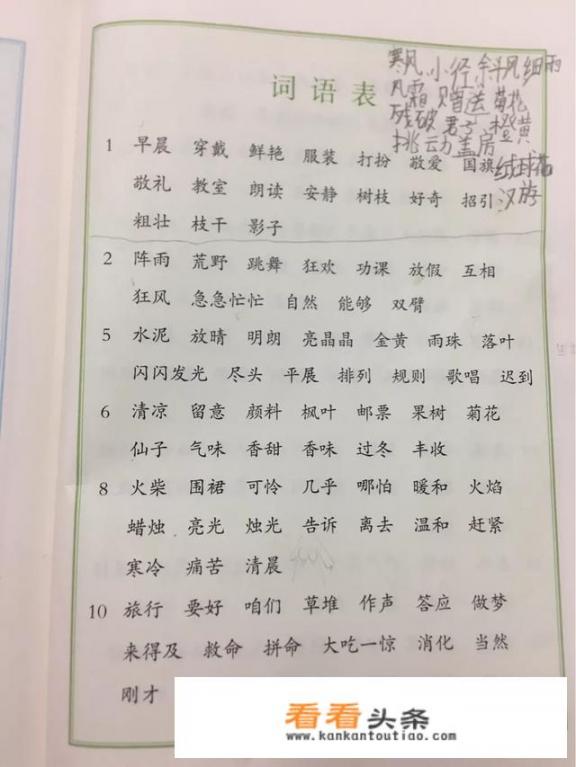 寒风 小径 斜风细雨
风霜 赠送 菊花
残破 君子 橙黄
挑动 盖房
绒球花
汉族
词语表
1 早晨 穿戴 鲜艳 服装 打扮 敬爱 国旗
敬礼 教室 朗读 安静 树枝 好奇 招引
粗壮 枝干 影子
2 阵雨 荒野 跳舞 狂欢 功课 放假 互相
狂风 急急忙忙 自然 能够 双臂
5 水泥 放晴 明朗 亮晶晶 金黄 雨珠 落叶
闪闪发光 尽头 平展 排列 规则 歌唱 迟到
6 清凉 留意 颜料 枫叶 邮票 果树 菊花
仙子 气味 香甜 香味 过冬 丰收
8 火柴 围裙 可怜 几乎 哪怕 暖和 火焰
蜡烛 亮光 烛光 告诉 离去 温和 赶紧
寒冷 痛苦 清晨
10 旅行 要好 咱们 草堆 作声 答应 做梦
来得及 救命 拼命 大吃一惊 消化 当然
刚才
看看头条
www.kankantoutiao.com